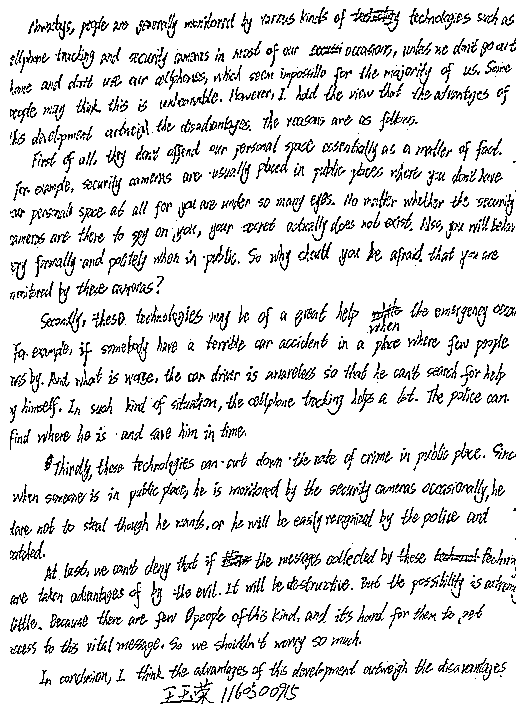 Nowadays, people are generally monitored by various kinds of technologies such as
cellphone tracking and security cameras in most of our occasions, unless we don't go out
home and don't use our cellphones, which seem impossible for the majority of us. Some
people may think this is unbearable. However, I hold the view that the advantages of
this development outweigh the disadvantages. The reasons are as follows.
First of all, they don't offend our personal space essentially as a matter of fact.
For example, security cameras are usually placed in public places where you don't have
your personal space at all for you are under so many eyes. No matter whether the security
cameras are there to spy on you, your secret actually does not exist. Also, you will behave
very formally and politely when in public. So why should you be afraid that you are
monitored by these cameras?
Secondly, these technologies may be of a great help when the emergency occurs
For example, if somebody have a terrible car accident in a place where few people
pass by. And what is worse, the car driver is awareless so that he can't search for help
by himself. In such kind of situation, the cellphone tracking helps a lot. The police can
find where he is and save him in time.
Thirdly, these technologies can cut down the rate of crime in public place. Since
when someone is in public place, he is monitored by the security cameras occasionally, he
dare not to steal though he wants, or he will be easily recognized by the police and
catched.
At last, we can't deny that if the messages collected by these
are taken advantages of by the evil. It will be destructive. But the possibility is extremely
little. Because there are few people of this kind, and it's hard for them to get
access to this vital message. So we shouldn't worry so much.
In conclusion, I think the advantages of this development outweigh the disadvantages
王玉荣 1160500915